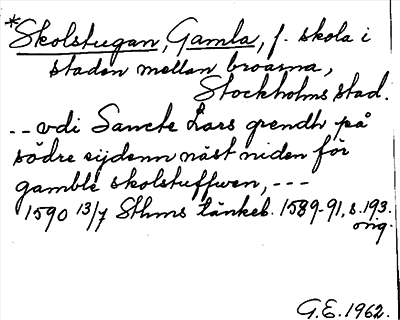 *Skolstugan, Gamla, f. skola i
staden mellan broarna,
Stockholms stad.
-- vdi Sancte Lars grendh på
södre sijdenn näst niden för
gamble skolstuffwen, ---
1590 13/7 Sthms tänkeb. 1589-91, s. 193.
orig.
G.E. 1962.